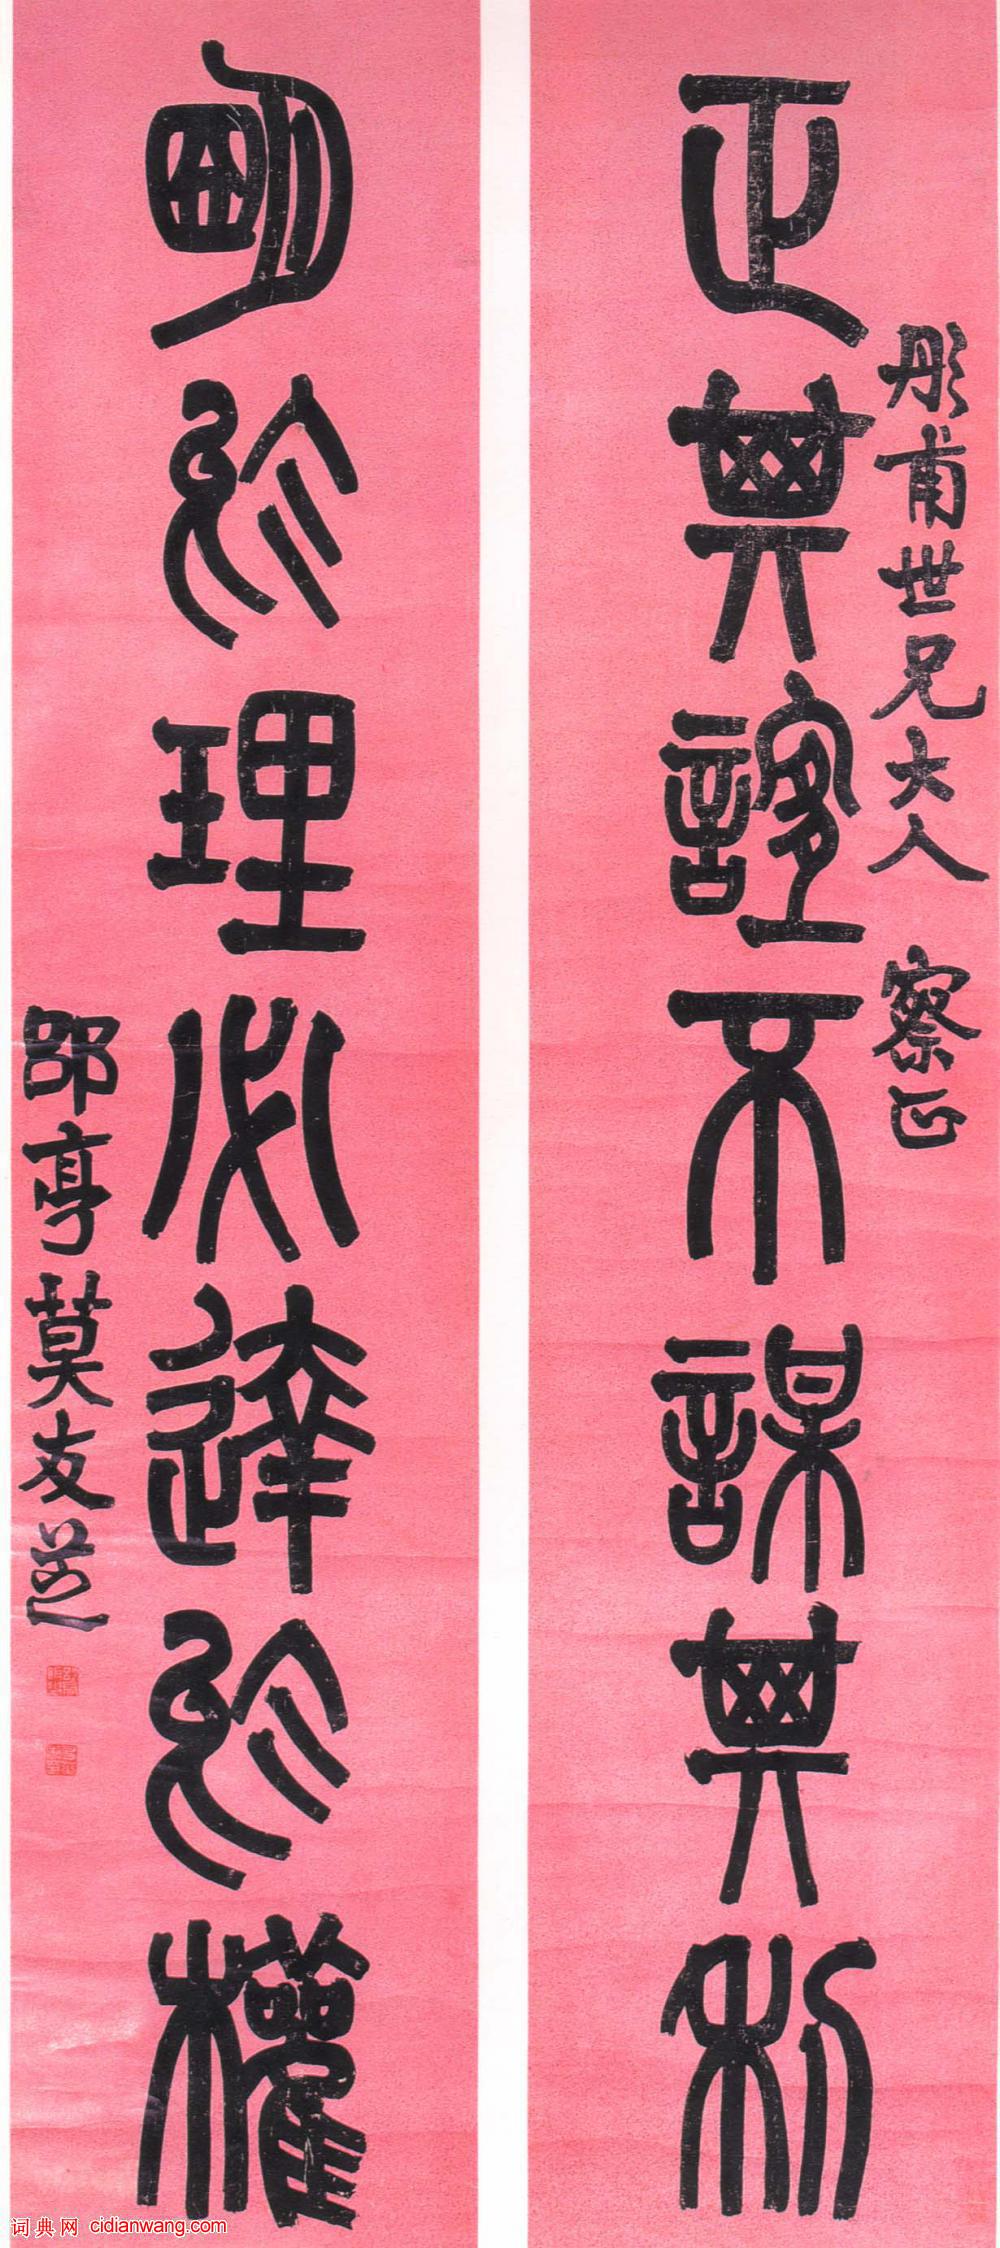 彤甫世兄大人 察正
正其誼不謀其利
明於理必達於權
郘亭莫友芝
词典网 cidianwang.com